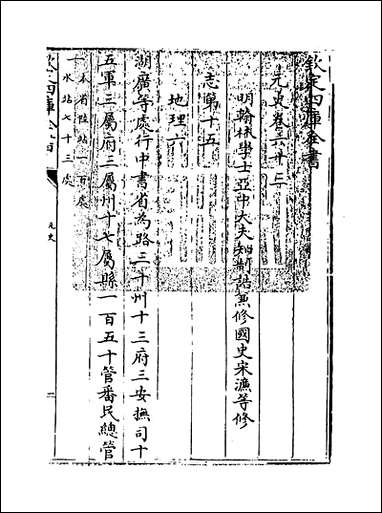 欽定四庫全書
元史卷六十三
明翰林學士亞中大夫知制誥兼修國史宋濂等修
志第十五
地理六
湖廣等處行中書省為路三十州十三府三安撫司十
五軍三屬府三屬州十七屬縣一百五十管番民總管
一本省陸站一百處
水站七十三處
元史